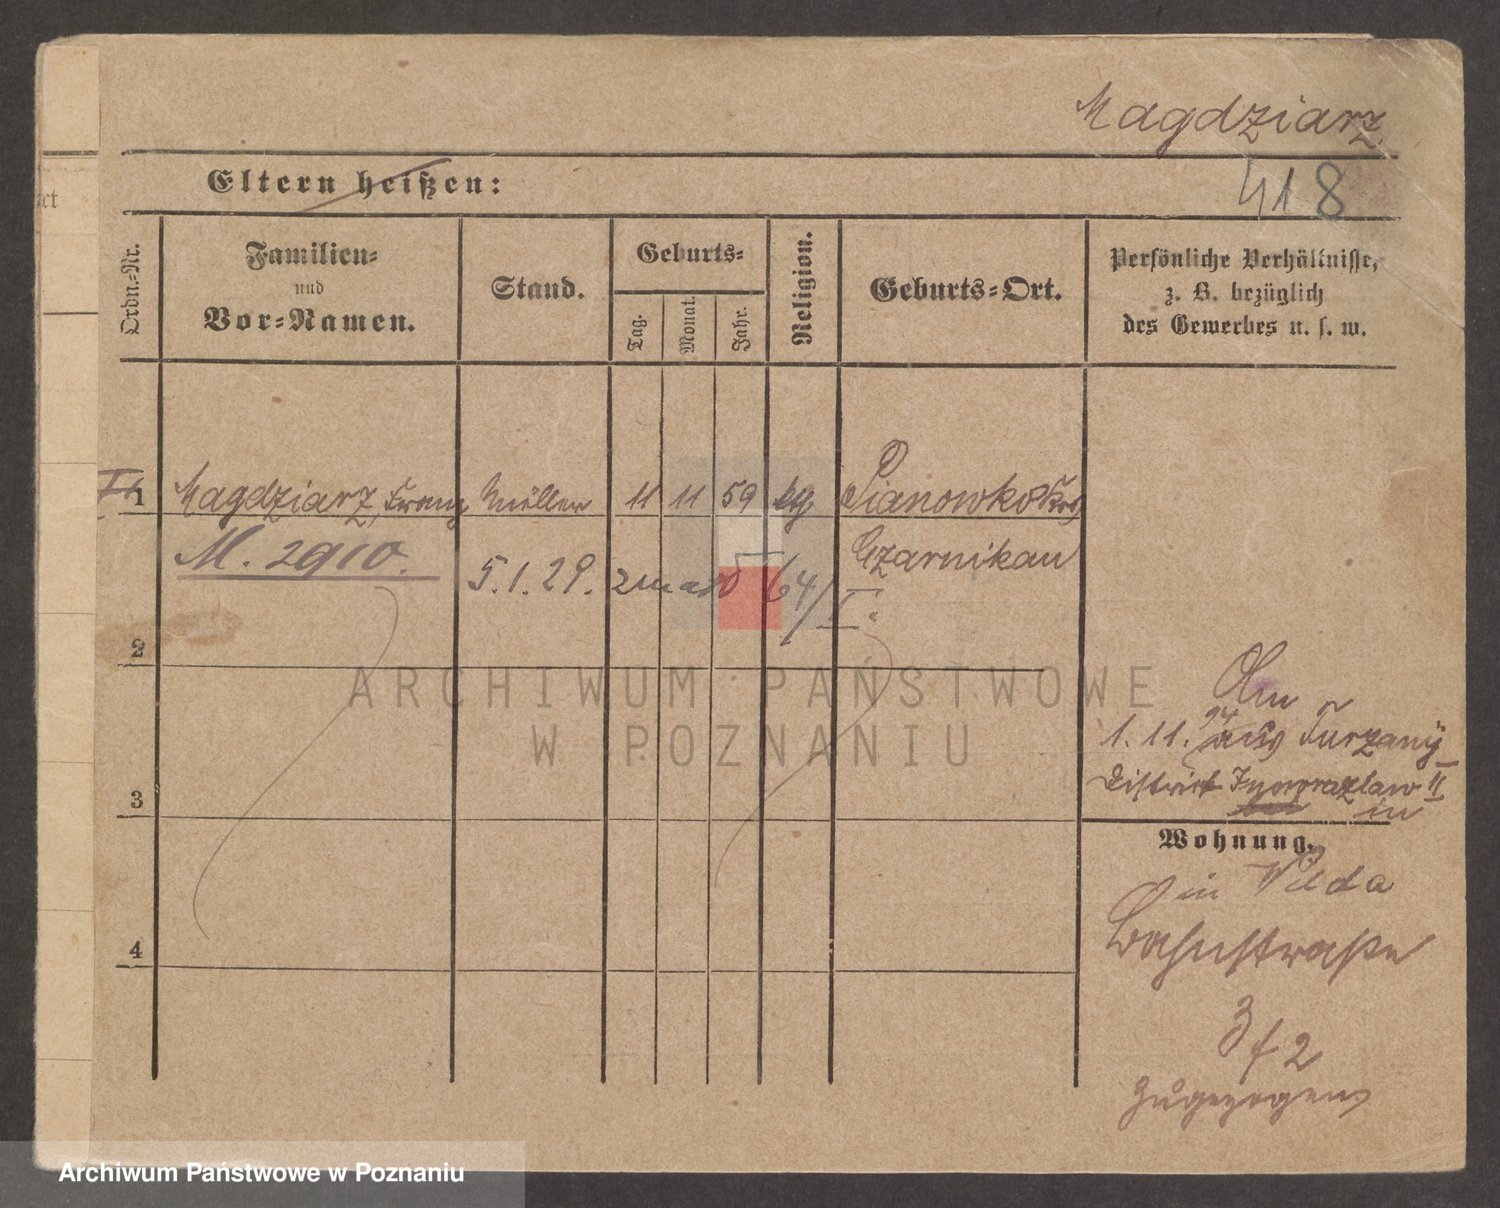 Magdziarz
Eltern heißen:
418
Ordn.-Nr.
Familien-
und
Vor-Namen.
Stand.
Geburts-
Tag.
Monat.
Jahr.
Religion.
Geburts-Ort.
Persönliche Verhältnisse,
z. B. bezüglich
des Gewerbes u. s. w.
1 Magdziarz, Franz Müller 11 11 59 kg Pianowko Krs
M. 2910. Czarnikau
5.1.29. 64/I.
2
ARCHIWUM PAŃSTWOWE
W POZNANIU
Am
1. 11. 94 aus Turzany
District Inowrazlaw II
in
3
Wohnung.
in Wilda
Bahnstraße
4
3 f 2
Zugezogen
Archiwum Państwowe w Poznaniu